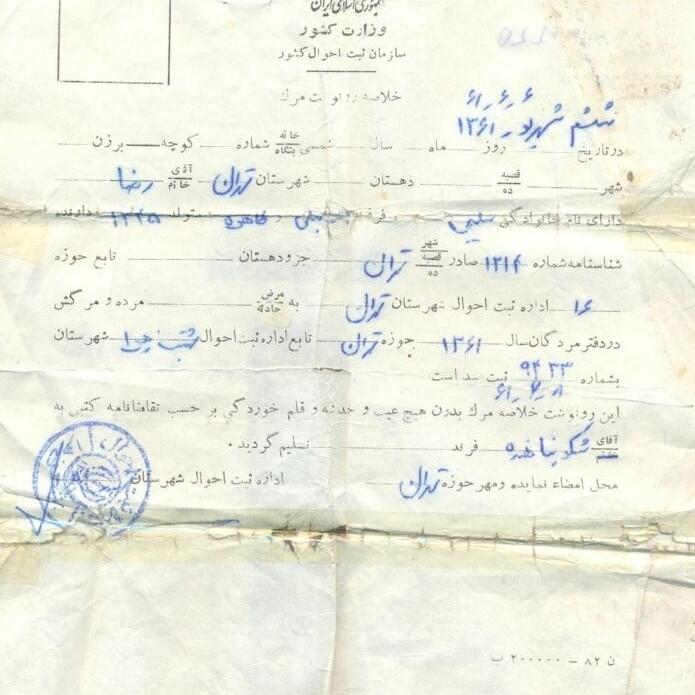 جمهوری اسلامی ایران
وزارت کشور
سازمان ثبت احوال کشور
خلاصه رونوشت مرگ
۶ر۶ر۶۱
ششم شهریور ۱۳۶۱
در تاریخ روز ماه سال شمسی خانه بنگاه شماره کوچه برزن
شهر قصبه ده دهستان شهرستان تهران آقای خانم رضا
دارای نام خانوادگی فرزند و متولد ۱۳۴۵ دارنده
شناسنامه شماره ۱۲۱۴ صادر شهر قصبه ده تهران جزو دهستان تابع حوزه
۱۶ اداره ثبت احوال شهرستان تهران به مرض حادثه مرده و مرگش
در دفتر مردگان سال ۱۳۶۱ حوزه تهران تابع اداره ثبت احوال شهرستان
بشماره ۹۴۳۳ ثبت شده است
این رونوشت خلاصه مرگ بدون هیچ عیب و خدشه و قلم خوردگی بر حسب تقاضانامه کتبی به
آقای خانم فرزند تسلیم گردید .
محل امضاء نماینده و مهر حوزه تهران اداره ثبت احوال شهرستان
ن ۸۲ – ۲۰۰۰۰۰ ب